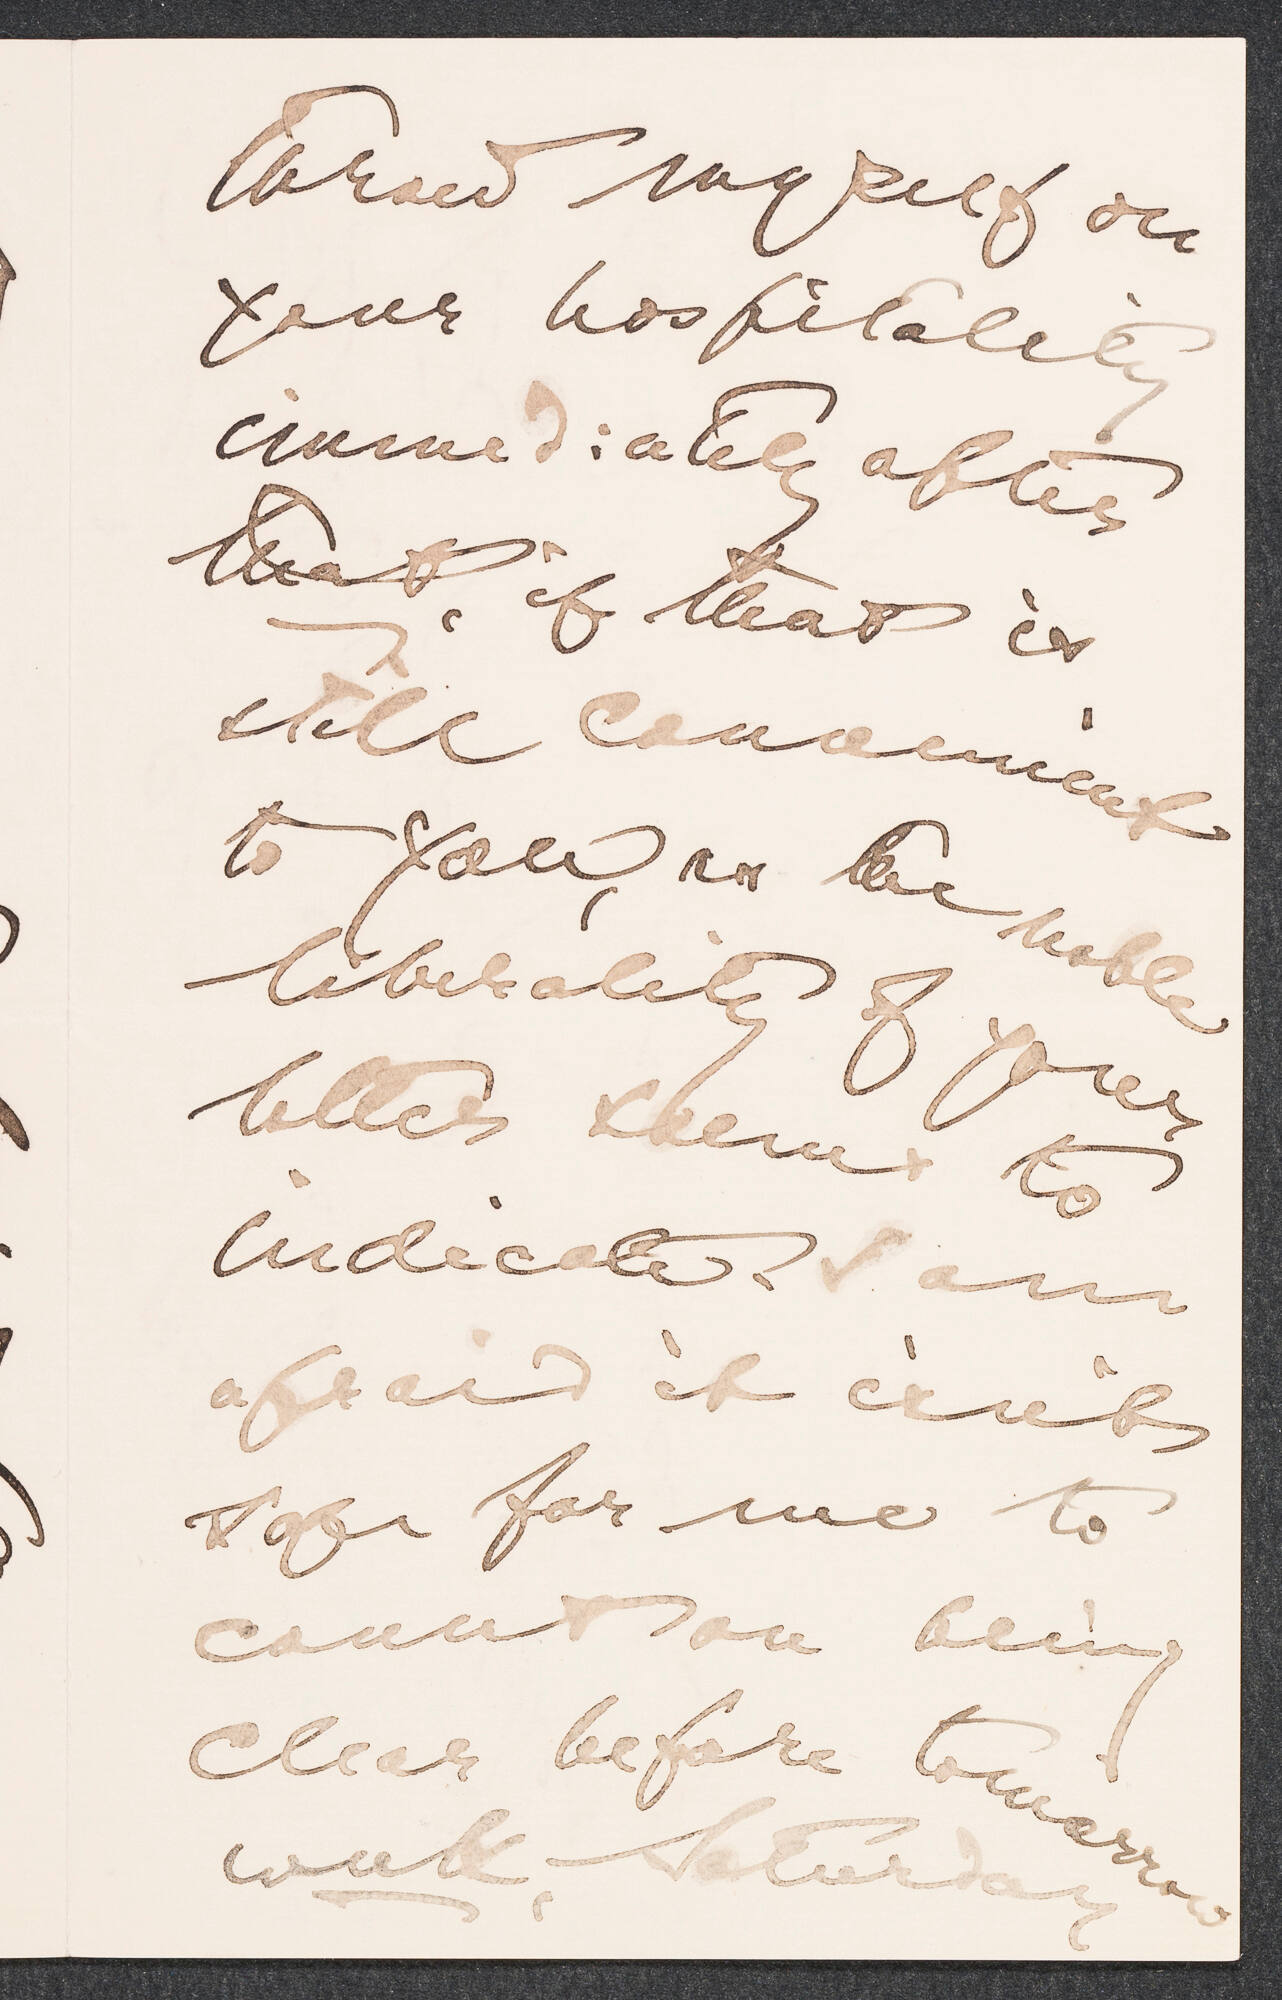 throw myself on
your hospitality
immediately after
that, if that is
still convenient
to you, as the noble
liberality of your
letter seems to
indicate. I am
afraid it isn't
safe for me to
count on being
clear before tomorrow
week, Saturday